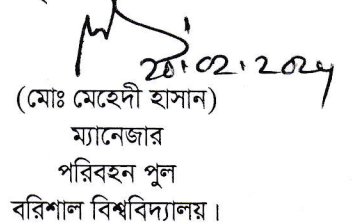 20.02.2024
(মোঃ মেহেদী হাসান)
ম্যানেজার
পরিবহন পুল
বরিশাল বিশ্ববিদ্যালয়।